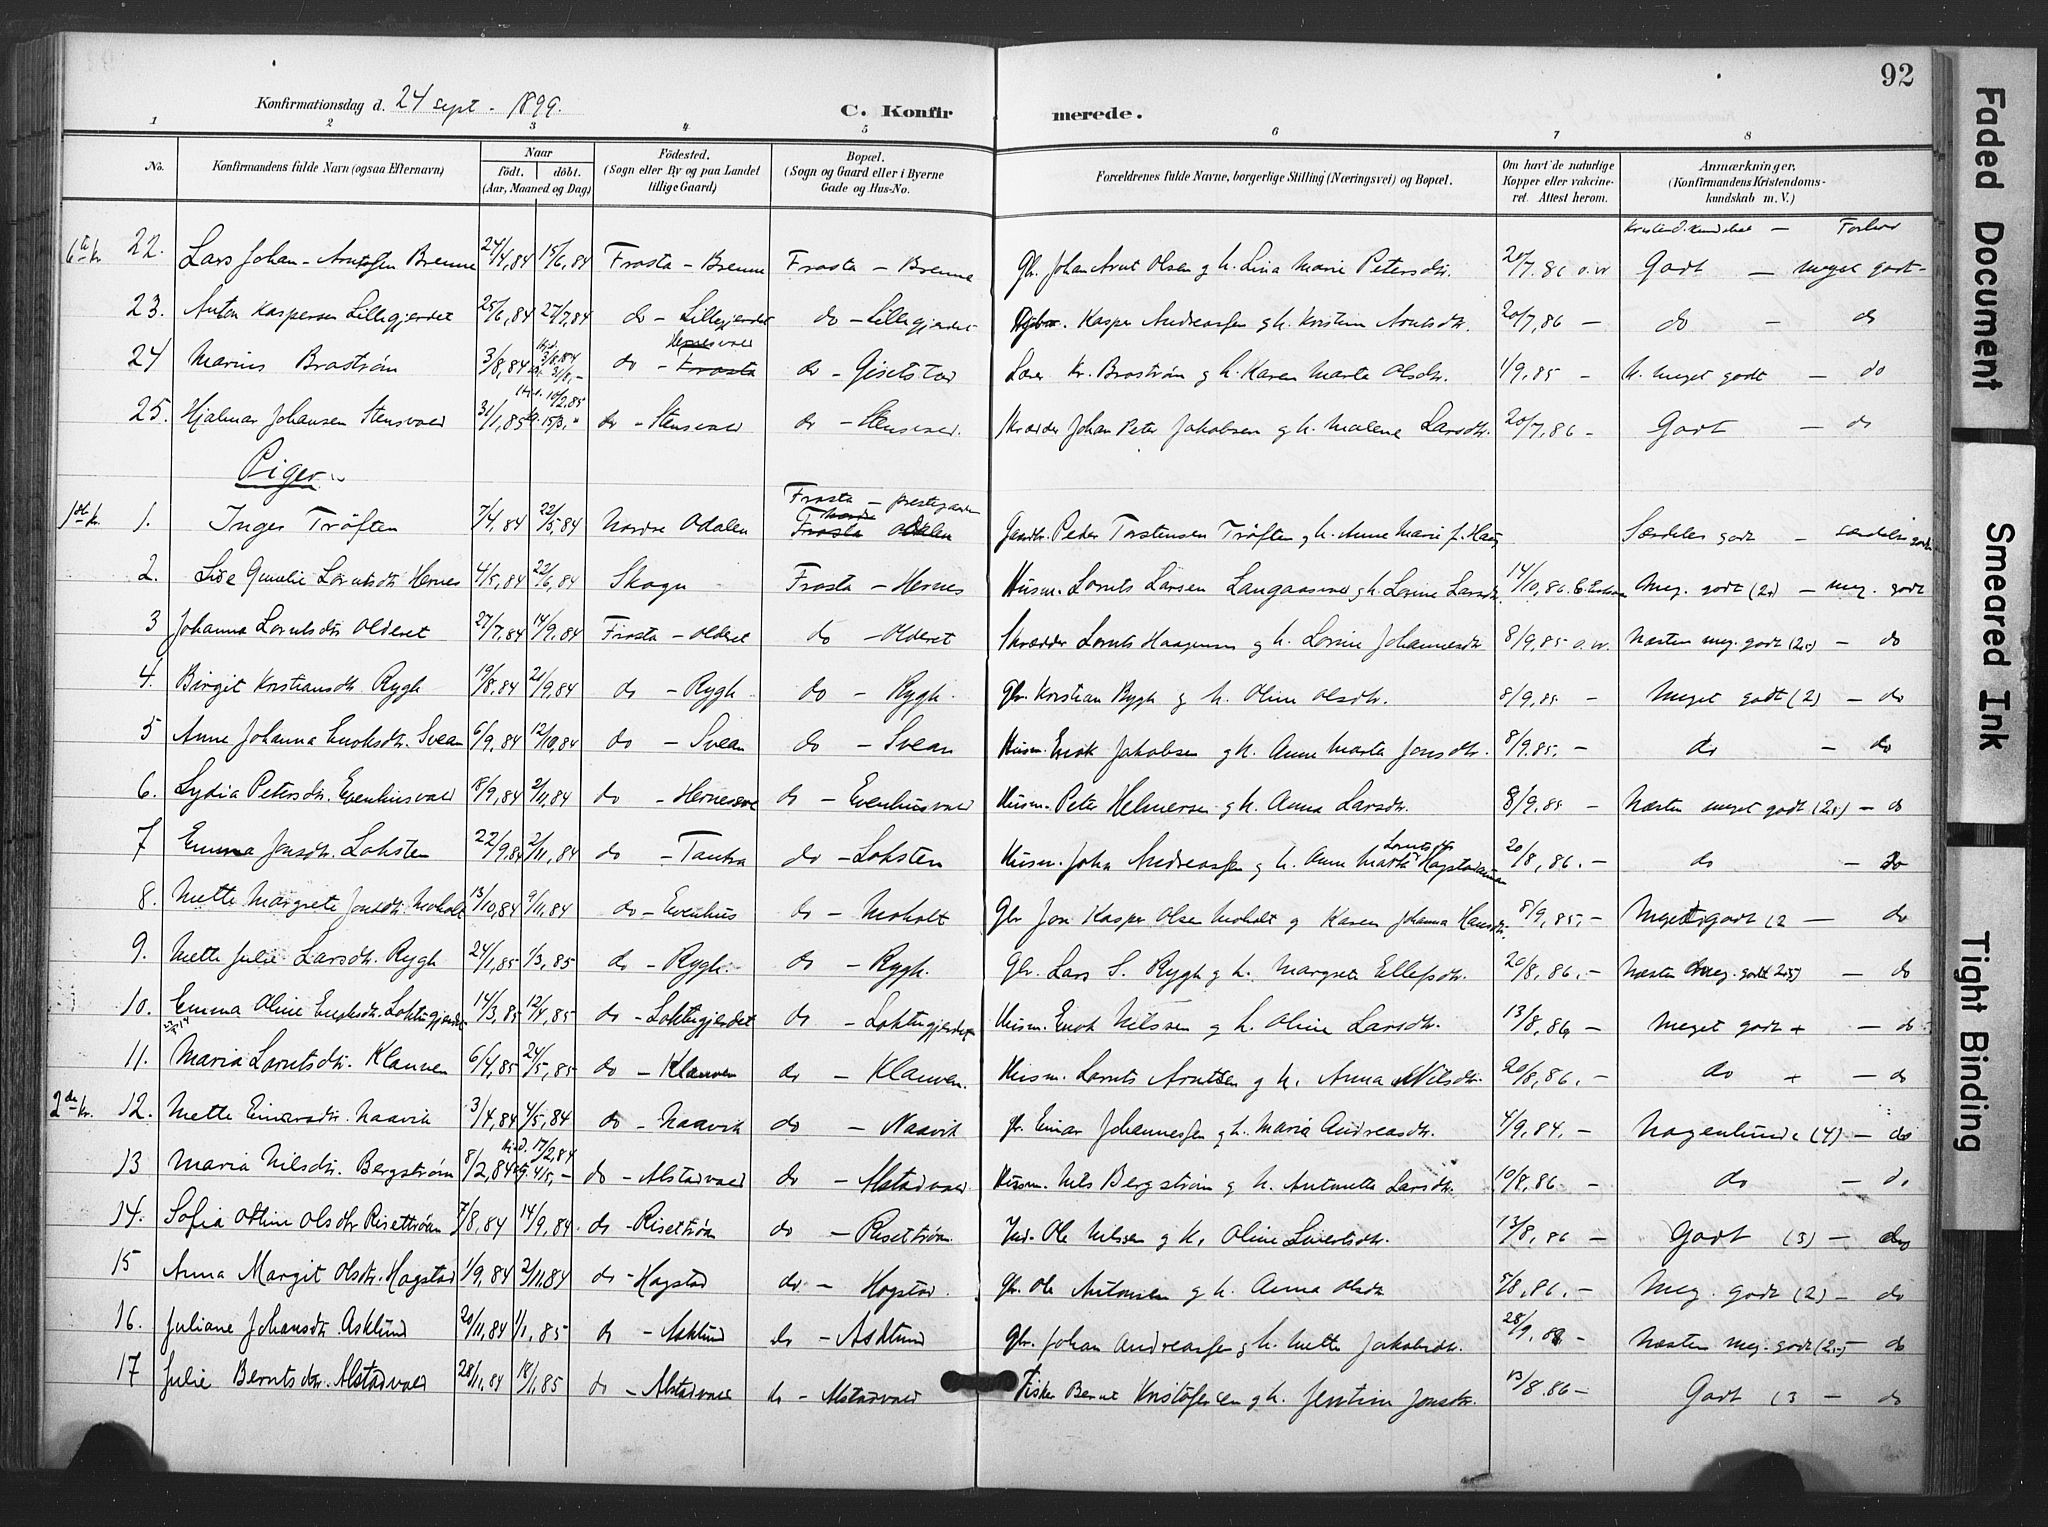 92
Konfirmationsdag d. 24 sept. 1899.
C. Konfirmerede.
1 2 3 4 5 6 7 8
No.
Konfirmandens fulde Navn (ogsaa Efternavn)
Naar
födt. döbt.
(Aar, Maaned og Dag)
Födested.
(Sogn eller By og paa Landet
tillige Gaard)
Bopæl.
(Sogn og Gaard eller i Byerne
Gade og Hus-No.
Forældrenes fulde Navne, borgerlige Stilling (Næringsvei) og Bopæl.
Om havt de naturlige
Kopper eller vakcine-
ret. Attest herom.
Anmærkninger.
(Konfirmandens Kristendoms-
kundskab m. V.)
22. Lars Johan Arntsen Brenne 24/4,84 15/6,84 Frosta - Brenne Frosta - Brenne Gbr. Johan Arnt Olsen g h. Lina Marie Petersdtr. 20/7.86 o.w Godt - meget godt
23. Anton Kaspersen Lillegjerdet 25/6,84 27/7,84 do - Lillegjerdet do - Lillegjerdet Kasper Andreassen g h. Kristine Arntsdtr. 20/7,86 - do - do
Hernesvald
24 Marius Brostrøm 3/8,84 do - Frosta do - Gisetstad Lærer Kr. Brostrøm g h. Karen Marta Olsdtr. 1/9,85 - N. meget godt - do
25. Hjalmar Johansen Stensvald 31/1,85 do - Stensvald do - Stensvald. Skrædder Johan Peter Jakobsen g h. Malene Larsdtr. 20/7,86 - Godt - do
Piger.
Frosta - prestegaarden
1. Inger Trøften 7/4,84 22/5,84 Nordre Odalen Gaardbr. Peder Torstensen Trøften g h. Anne Marie f. Haug Særdeles godt - særdeles godt
2. Lise Gunelie Lorntsdtr Hernes 4/5,84 22/6,84 Skogn Frosta - Hernes Husm. Lornts Larsen g h. Lorine Larsdtr. 14/10,86. Meg. godt (2) - meg. godt
3 Johanna Lorntsdtr Olderet 27/7,84 14/9,84 Frosta - Olderet do - Olderet Skrædder Lornts Haagensen g h. Lorine Johannesdtr 8/9,85 o.w. Næsten meg. godt (2,5) - do
4. Birgit Kristiansdtr. Rygh 19/8,84 21/9,84 do - Rygh do - Rygh. Gbr. Kristian Rygh g h. Oline Olsdtr. 8/9,85 - Meget godt (2) - do
5 Anne Johanna Enoksdtr. Svean 6/9,84 12/10,84 do - Svean do - Svean Husm. Enok Jakobsen g h. Anne Marta Jonsdtr. 8/9.85. - do - do
6. Lydia Petersdtr. Evenhusvald 18/9,84 2/11,84 do do - Evenhusvald Husm. Peter Helmersen g h. Anna Larsdtr. 8/9,85 - Næsten meget godt (2,5) - do
7 Emma Jonsdtr. Loksten 22/9,84 2/11,84 do - Tautra do - Loksten Husm. John Andreassen g h. Anne Marta 20/8,86. - do - do
8. Mette Margrete Jonsdtr Moholt 13/10,84 9/11,84 do - Evenhus do - Moholt Gbr Jon Kasper Olsen Moholt g Karen Johanna Hansdtr. 8/9,85.- Meget godt (2 - do
9. Mette Julie Larsdtr. Rygh 24/1,85 1/3,85 do - Rygh. do - Rygh. Gbr. Lars S. Rygh g h. Margreta Ellefsdtr. 20/8,86.- Næsten meg. godt 2,5) - do
10. Emma Oline Enoksdtr. Loktugjerdet 14/3,85 12/4,85 do - Loktugjerdet do - Loktugjerdet Husm. Enok Nilssen g h. Oline Larsdtr. 13/8,86, - Meget godt + - do
11. Maria Lorntsdtr. Klauven 6/4,85 24/5,85 do - Klauven do - Klauven. Husm. Lornts Arntsen g h. Anna Nilsdtr. 20/8,86.- do + - do
12. Mette Einarsdtr. Naavik 3/4,84 4/5,84 do - Naavik do - Naavik Gbr. Einar Johannessen g h. Maria Andreasdtr. 4/9,84.- Nogenlunde (4) - do
13 Maria Nilsdtr. Bergstrøm 8/2,84 do - Alstadvald do - Alstadvald Husm. Nils Bergstrøm g h. Antonette Larsdtr. 10/8,86 - do - do
14. Sofia Oline Olsdtr Risettrøen 7/8,84 14/9,84. do - Risettrøen do - Risettrøen. Ole Nilssen g h. Oline Sivertsdtr. 13/8,86 - Godt (3) - do
15 Anna Margit Olsdtr. Hogstad 1/9,84 2/11,84 do - Hogstad do - Hogstad. Gbr. Ole Antonsen g h. Anna Olsdtr 5/8,86.- Meg. godt (2) - do
16. Juliane Johansdtr Asklund 20/11,84 1/1,85 do - Asklund do - Asklund Gbr. Johan Andreassen g h. Mette Jakobsdtr. Næsten meg. godt (2,5) do
17 Julie Berntsdtr. Alstadvald 28/11,84 18/1,85 do - Alstadvald do - Alstadvald Fisker Bernt Kristofersen g h. Jentine Jonsdtr. 13/8.86- Godt (3 - do
Faded Document
Smeared Ink
Tight Binding